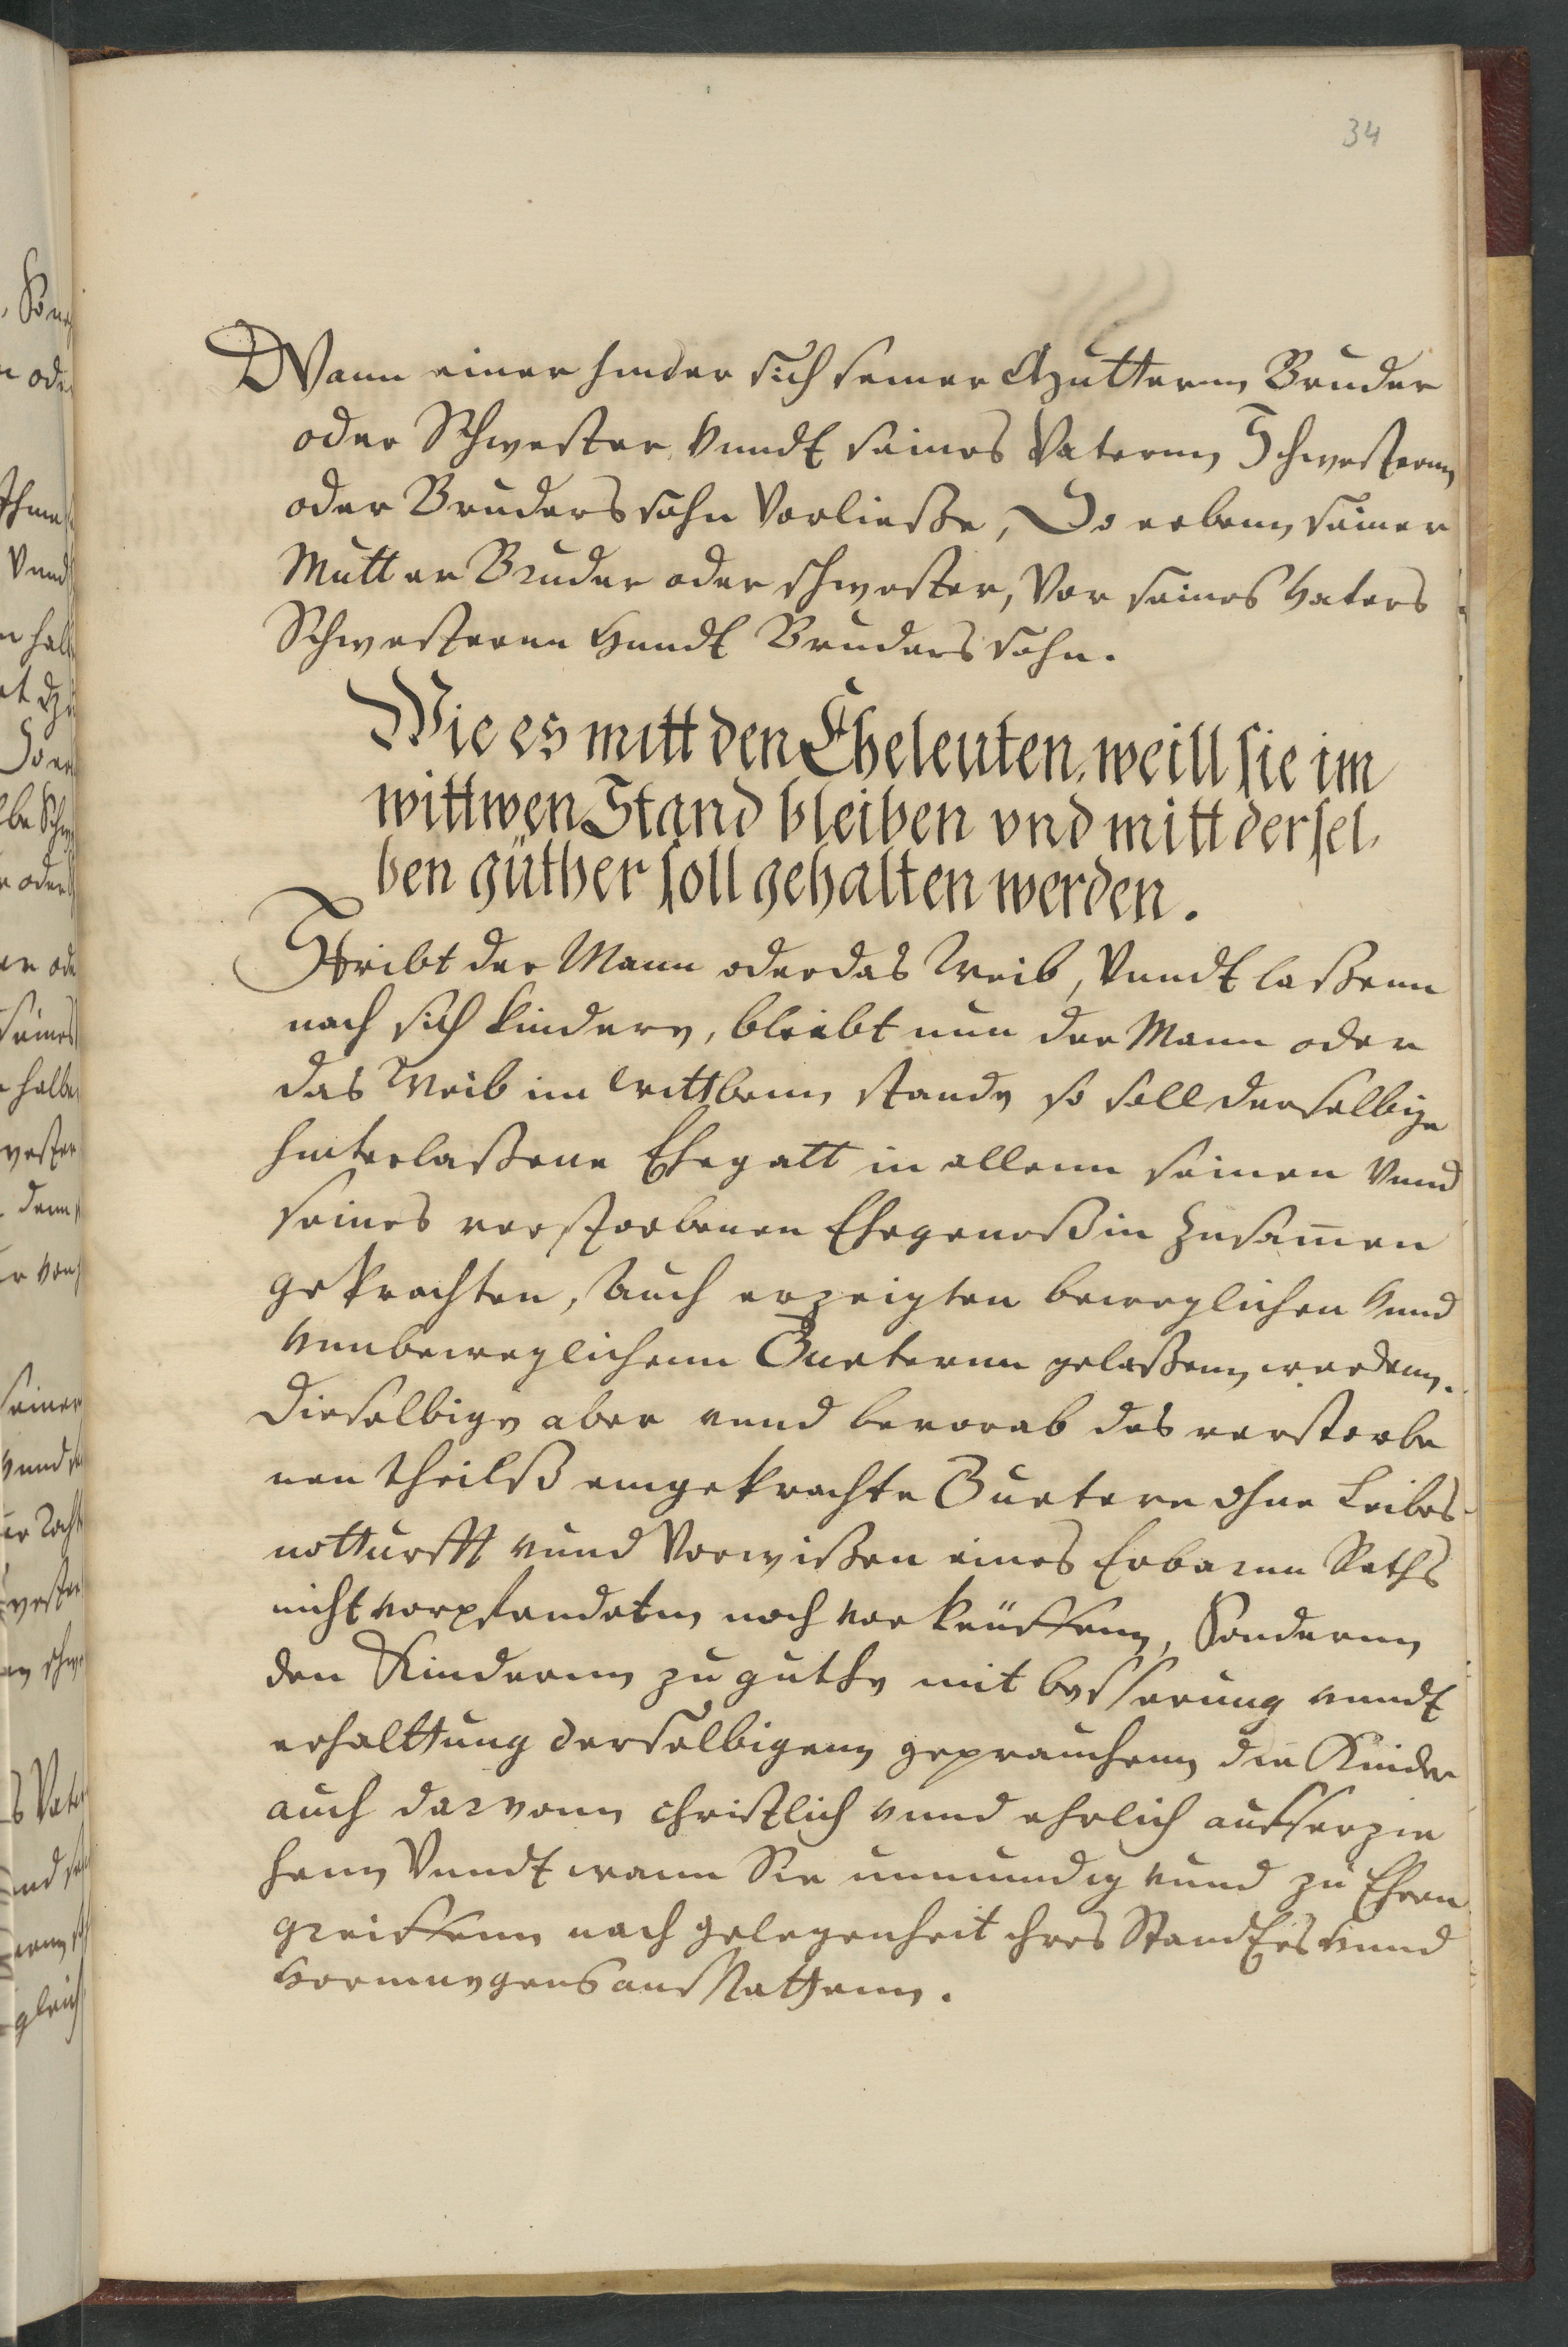 34
Wann einer hinder sich seiner Mutternn Bruder
oder Schwester vnndt seines Vaternn Schwesternn
oder Bruders sohn Vorließe, So erbenn seiner
Mutter Bruder oder schwester, Vor seines Vaters
Schwesternn Vnndt Bruders sohn.
Wie es mitt den Eheleuten, weill sie im
wittwen Stand bleiben vnd mitt dersel,
ben güther soll gehalten werden.
Stirbt der Mann oder das Weib, Vnndt laßenn
nach sich kindern, bleibt nun der Mann oder
das Weib im Wittbenn stande so soll derselbige
hinterlaßene Ehegatt in allenn seinen Vnnd
seines verstorbenen Ehegenoßin Zusam̄en
gebrachten, Auch erzeigten beweglichen Vnnd
Vnnbeweglichenn Gueternn gelaßenn werdenn.
Dieselbige aber vnnd bevorab des verstorbe
nen theilß eingebrachte Guetern ohne Leibes-
notturfft vnnd Vorwißen eines Erbarnn Raths
nicht vorpfendetnn noch vorkeüffenn, Sondernn
den Kindernn zu guthe mit besserung vnndt
erhalttung derselbigenn geprauchenn die Kinder
auch darvonn christlich vnnd ehrlich aufferzie
henn Vnndt wann Sie unmundig vnnd zu Ehren
greiffenn nach gelegenheit ihres Standtes Vnnd
Vormugens ausstattenn.